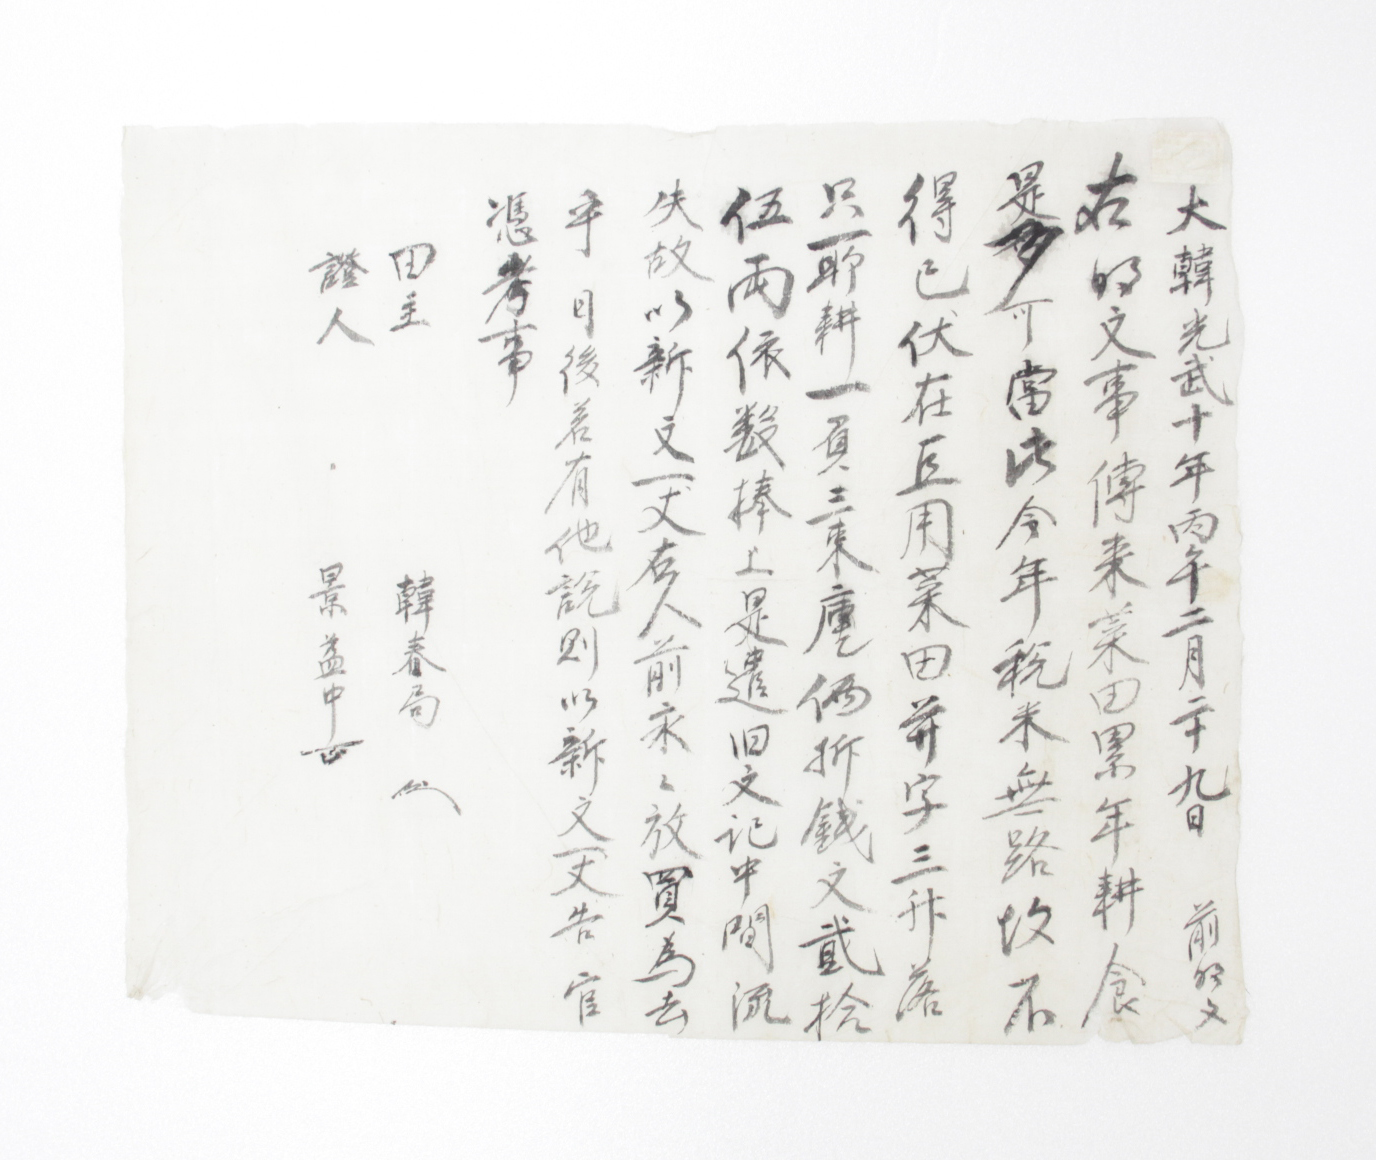 大韓光武十年丙午二月二十九日 前明文
右明文事傳来菜田累年耕食
是多可當此今年稅米無路故不
得已伏在臣用菜田芥字三升落
只一耶耕一負三束庫價折錢文貳拾
伍兩依数捧上是遣旧文記中間流
失故以新文一丈右人前永〻放買為去
乎日後若有他說則以新文一丈告官
憑考事
田主 韓春局
證人 景益中